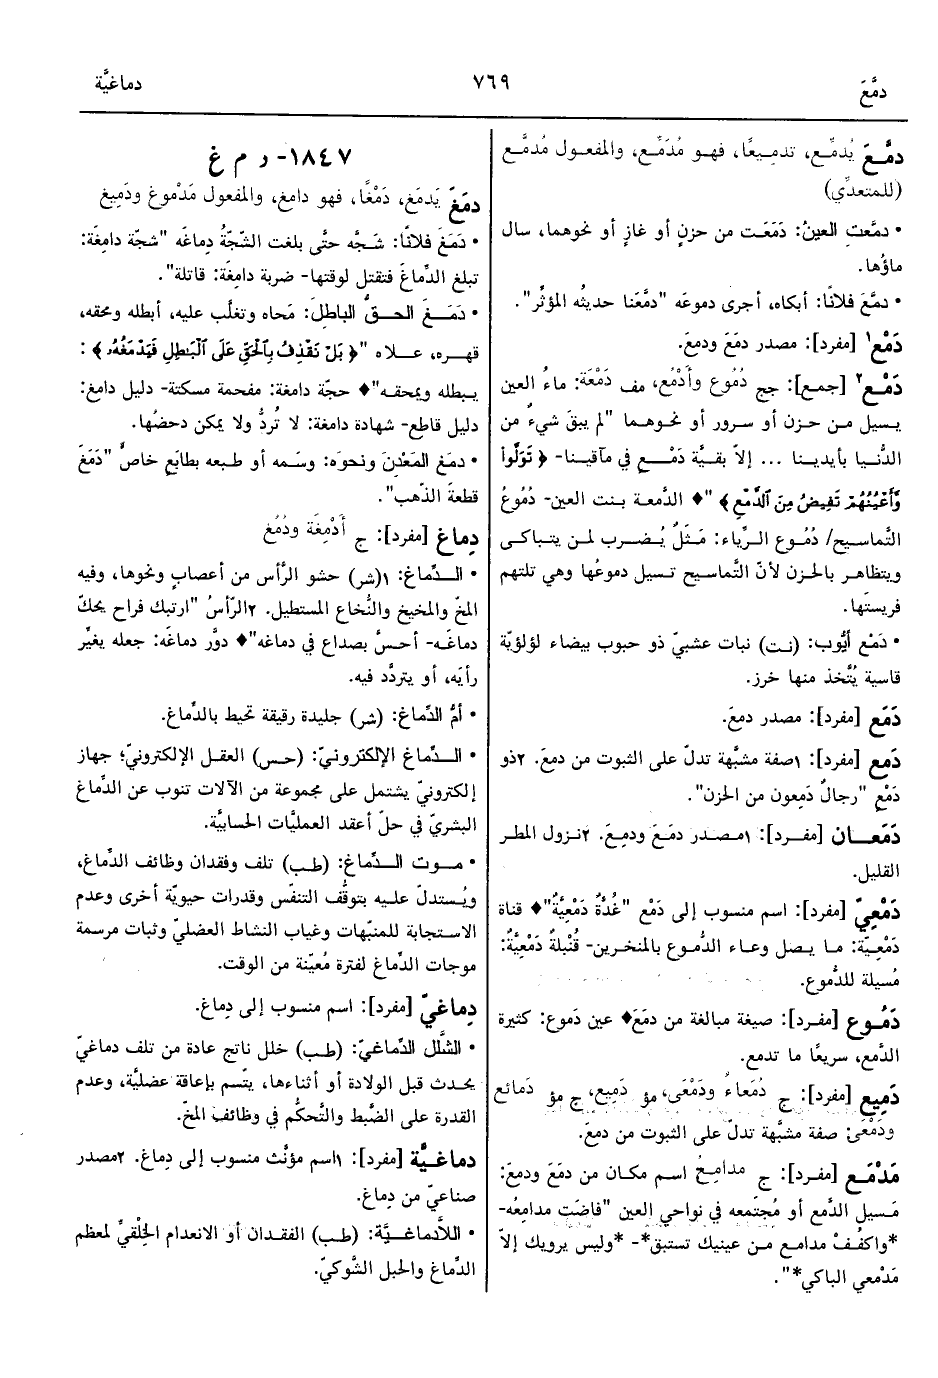 دمَّعَ
٧٦٩
دماغيَّة
دمَّعَ يُدمِّع، تدميعًا، فهو مُدَمِّع، والمفعول مُدمَّع
(للمتعدِّي)
• دمَّعتِ العينُ: دَمَعَت من حزنٍ أو غازٍ أو نحوهما، سال
ماؤها.
• دمَّعَ فلانًا: أبكاه، أجرى دموعَه "دمَّعَنا حديثُه المؤثِّر".
دَمْع١ [مفرد]: مصدر دمَعَ ودمِعَ.
دَمْع٢ [جمع]: جج دُمُوع وأَدْمُع، مف دَمْعَة: ماءُ العين
يسيل من حزن أو سرور أو نحوهما "لم يبقَ شيءٌ من
الدُّنيا بأيدينا ... إلاّ بقيَّة دَمْع في مآقينا- ﴿تَوَلَّوا
وَّأَعْيُنُهُمْ تَفِيضُ مِنَ الدَّمْعِ﴾ "♦ الدَّمعة بنت العين- دُمُوعُ
التَّماسيح/ دُمُوع الرِّياء: مَثَلٌ يُضرب لمن يتباكى
ويتظاهر بالحزن لأنّ التَّماسيح تسيل دموعُها وهي تلتهم
فريستَها.
• دَمْع أيُّوب: (نت) نبات عشبيّ ذو حبوب بيضاء لؤلؤيّة
قاسية يُتَّخذ منها خرز.
دَمَع [مفرد]: مصدر دمِعَ.
دَمِع [مفرد]: ١صفة مشبَّهة تدلّ على الثبوت من دمِعَ. ٢ذو
دَمْعٍ "رجالٌ دَمِعون من الحزن".
دَمَعَان [مفرد]: ١مصدر دمَعَ ودمِعَ. ٢نزول المطر
القليل.
دَمْعيّ [مفرد]: اسم منسوب إلى دَمْع "غُدَّةٌ دَمْعِيَّةٌ"♦ قناة
دَمْعِيّة: ما يصل وعاء الدُّموع بالمنخرين- قُنْبلةٌ دَمْعِيَّةٌ:
مُسيلة للدُّموع.
دَمُوع [مفرد]: صيغة مبالغة من دمَعَ♦ عين دَموع: كثيرة
الدَّمع، سريعًا ما تدمع.
دَمِيع [مفرد]: ج دُمَعاءُ ودَمْعَى، مؤ دَمِيع، ج مؤ دَمائع
ودَمْعَى: صفة مشبَّهة تدلّ على الثبوت من دمِعَ.
مَدْمَع [مفرد]: ج مدامِعُ اسم مكان من دمَعَ ودمِعَ:
مَسيل الدَّمع أو مُجتَمعه في نواحي العين "فاضَت مدامعُه-
*واكفُفْ مدامع من عينيك تستبق*- *وليس يرويك إلاّ
مَدْمعي الباكي*".
١٨٤٧- د م غ
دمَغَ يَدمَغ، دَمْغًا، فهو دامِغ، والمفعول مَدْموغ ودَمِيغ
• دَمَغَ فلانًا: شَجَّه حتَّى بلغت الشَّجَّةُ دِماغَه "شجّة دامِغَة:
تبلغ الدِّماغَ فتقتل لوقتها- ضربة دامِغَة: قاتلة".
• دَمَغَ الحقُّ الباطلَ: مَحاه وتغلَّب عليه، أبطله ومحقه،
قهره، علاه "﴿بَلْ نَقْذِفُ بِالْحَقِّ عَلَى الْبَاطِلِ فَيَدْمَغُهُ﴾:
يبطله ويمحقه"♦ حجّة دامغة: مفحمة مسكتة- دليل دامغ:
دليل قاطع- شهادة دامغة: لا تُردُّ ولا يمكن دحضُها.
• دمَغَ المَعْدَنَ ونحوَه: وسَمه أو طبعه بطابَعٍ خاصٍّ "دَمَغَ
قطعةَ الذّهب".
دِماغ [مفرد]: ج أَدْمِغَة ودُمُغ
• الدِّماغ: ١(شر) حشو الرَّأس من أعصابٍ ونحوها، وفيه
المخّ والمخيخ والنُّخاع المستطيل. ٢الرَّأسُ "ارتبك فراح يحكّ
دماغَه- أحسَّ بصداع في دماغه"♦ دوَّر دماغَه: جعله يغيِّر
رأيَه، أو يتردَّد فيه.
• أمُّ الدِّماغ: (شر) جليدة رقيقة تحيط بالدِّماغ.
• الدِّماغ الإلكترونيّ: (حس) العقل الإلكترونيّ؛ جهاز
إلكترونيّ يشتمل على مجموعة من الآلات تنوب عن الدِّماغ
البشريّ في حلّ أعقد العمليَّات الحسابيَّة.
• موت الدِّماغ: (طب) تلف وفقدان وظائف الدِّماغ،
ويُستدلّ عليه بتوقُّف التنفّس وقدرات حيويّة أخرى وعدم
الاستجابة للمنبّهات وغياب النشاط العضليّ وثبات مرسمة
موجات الدِّماغ لفترة مُعيّنة من الوقت.
دِماغيّ [مفرد]: اسم منسوب إلى دِماغ.
• الشَّلَل الدِّماغيّ: (طب) خلل ناتج عادة من تلف دماغيّ
يحدث قبل الولادة أو أثناءها، يتّسم بإعاقة عضليَّة، وعدم
القدرة على الضَّبط والتَّحكُّم في وظائف المخّ.
دماغيَّة [مفرد]: ١اسم مؤنَّث منسوب إلى دِماغ. ٢مصدر
صناعيّ من دِماغ.
• اللاَّدماغيَّة: (طب) الفقدان أو الانعدام الخِلْقيّ لمعظم
الدِّماغ والحبل الشَّوكيّ.